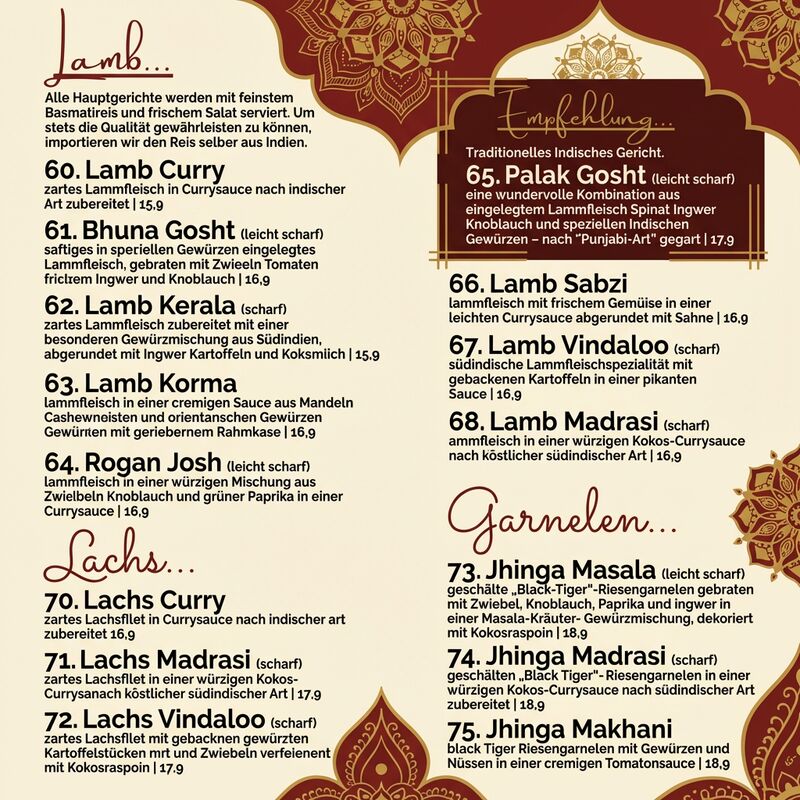 Lamb...
Alle Hauptgerichte werden mit feinstem
Basmatireis und frischem Salat serviert. Um
stets die Qualität gewährleisten zu können,
importieren wir den Reis selber aus Indien.
60. Lamb Curry
zartes Lammfleisch in Currysauce nach indischer
Art zubereitet | 15,9
61. Bhuna Gosht (leicht scharf)
saftiges in speriellen Gewürzen eingelegtes
Lammfleisch, gebraten mit Zwieeln Tomaten
friclzem Ingwer und Knoblauch | 16,9
62. Lamb Kerala (scharf)
zartes Lammfleisch zubereitet mit einer
besonderen Gewürzmischung aus Südindien,
abgerundet mit Ingwer Kartoffeln und Koksmilch | 15,9
63. Lamb Korma
lammfleisch in einer cremigen Sauce aus Mandeln
Cashewneisten und orientanschen Gewürzen
Gewürten mit geriebernem Rahmkase | 16,9
64. Rogan Josh (leicht scharf)
lammfleisch in einer würzigen Mischung aus
Zwielbeln Knoblauch und grüner Paprika in einer
Currysauce | 16,9
Lachs...
70. Lachs Curry
zartes Lachsflet in Currysauce nach indischer art
zubereitet 16,9
71. Lachs Madrasi (scharf)
zartes Lachsfllet in einer würzigen Kokos-
Currysanach köstlicher südindischer Art | 17.9
72. Lachs Vindaloo (scharf)
zartes Lachsfllet mit gebacknen gewürzten
Kartoffelstücken mrt und Zwiebeln verfeienent
mit Kokosraspoin | 17.9
Empfehlung...
Traditionelles Indisches Gericht.
65. Palak Gosht (leicht scharf)
eine wundervolle Kombination aus
eingelegtem Lammfleisch Spinat Ingwer
Knoblauch und speziellen Indischen
Gewürzen – nach "Punjabi-Art" gegart | 17.9
66. Lamb Sabzi
lammfleisch mit frischem Gemüise in einer
leichten Currysauce abgerundet mit Sahne | 16,9
67. Lamb Vindaloo (scharf)
südindische Lammfleischspezialität mit
gebackenen Kartoffeln in einer pikanten
Sauce | 16,9
68. Lamb Madrasi (scharf)
ammfleisch in einer würzigen Kokos-Currysauce
nach köstlicher südindischer Art | 16,9
Garnelen...
73. Jhinga Masala (leicht scharf)
geschälte „Black-Tiger"-Riesengarnelen gebraten
mit Zwiebel, Knoblauch, Paprika und ingwer in
einer Masala-Kräuter- Gewürzmischung, dekoriert
mit Kokosraspoin | 18,9
74. Jhinga Madrasi (scharf)
geschälten „Black Tiger"-Riesengarnelen in einer
würzigen Kokos-Currysauce nach südindischer Art
zubereitet | 18,9
75. Jhinga Makhani
black Tiger Riesengarnelen mit Gewürzen und
Nüssen in einer cremigen Tomatonsauce | 18,9